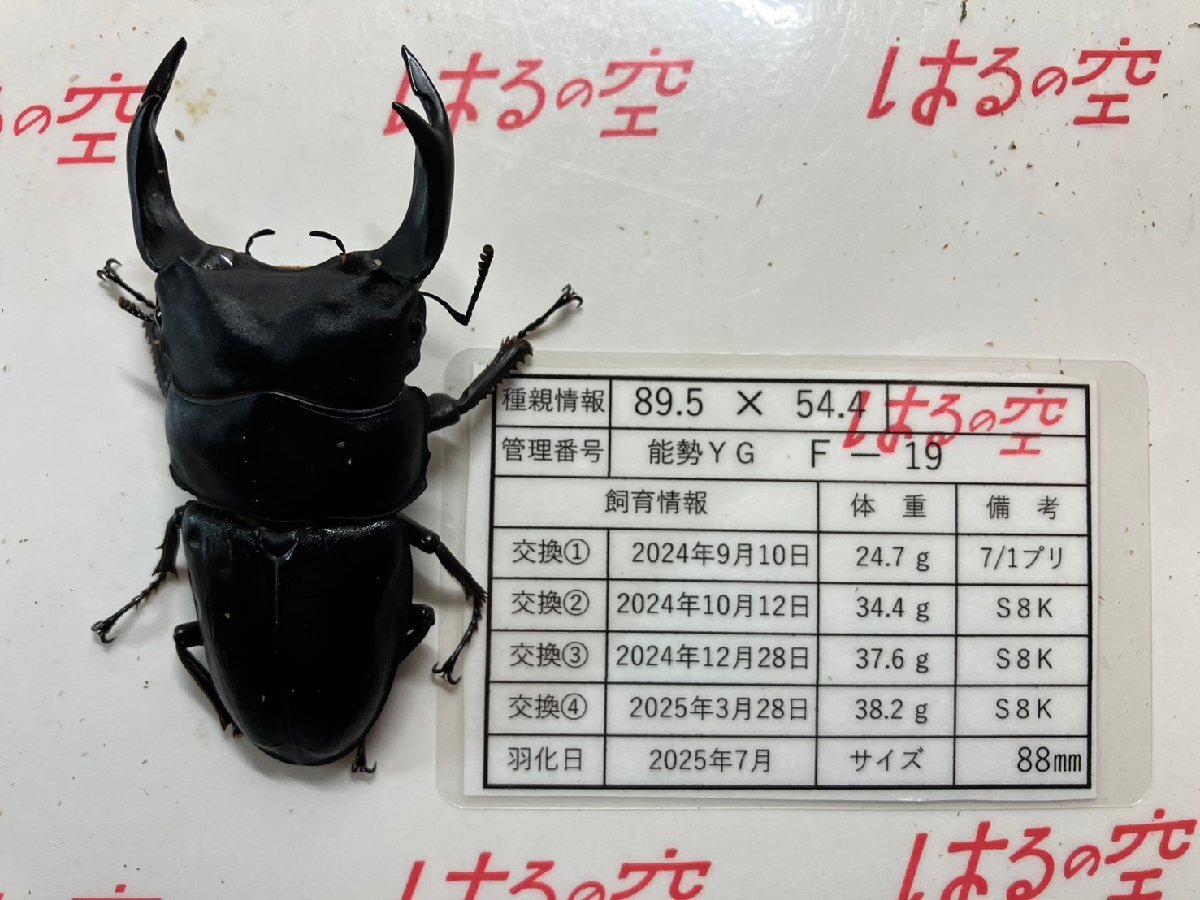 の空
はるの空
はるの空
種親情報 89.5 × 54.4
はるの空
管理番号 能勢ＹＧ Ｆ － 19
飼育情報 体 重 備 考
交換① 2024年9月10日 24.7 g 7/1プリ
交換② 2024年10月12日 34.4 g S8K
交換③ 2024年12月28日 37.6 g S8K
交換④ 2025年3月28日 38.2 g S8K
羽化日 2025年7月 サイズ 88㎜
はるの空
はるの空